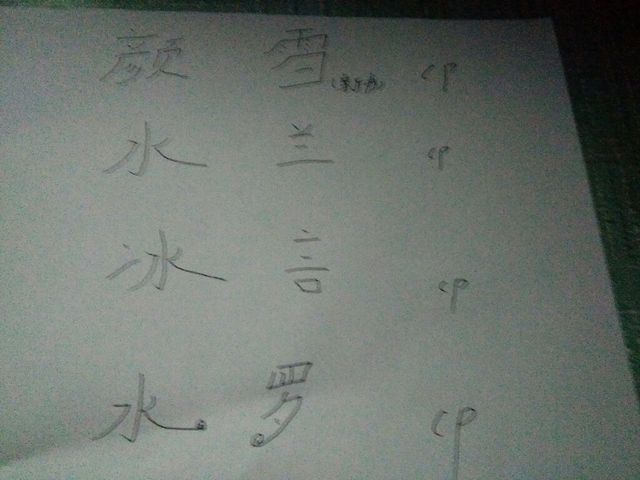 颜 雪 cp
水 兰 cp
冰 言 cp
水 罗 cp